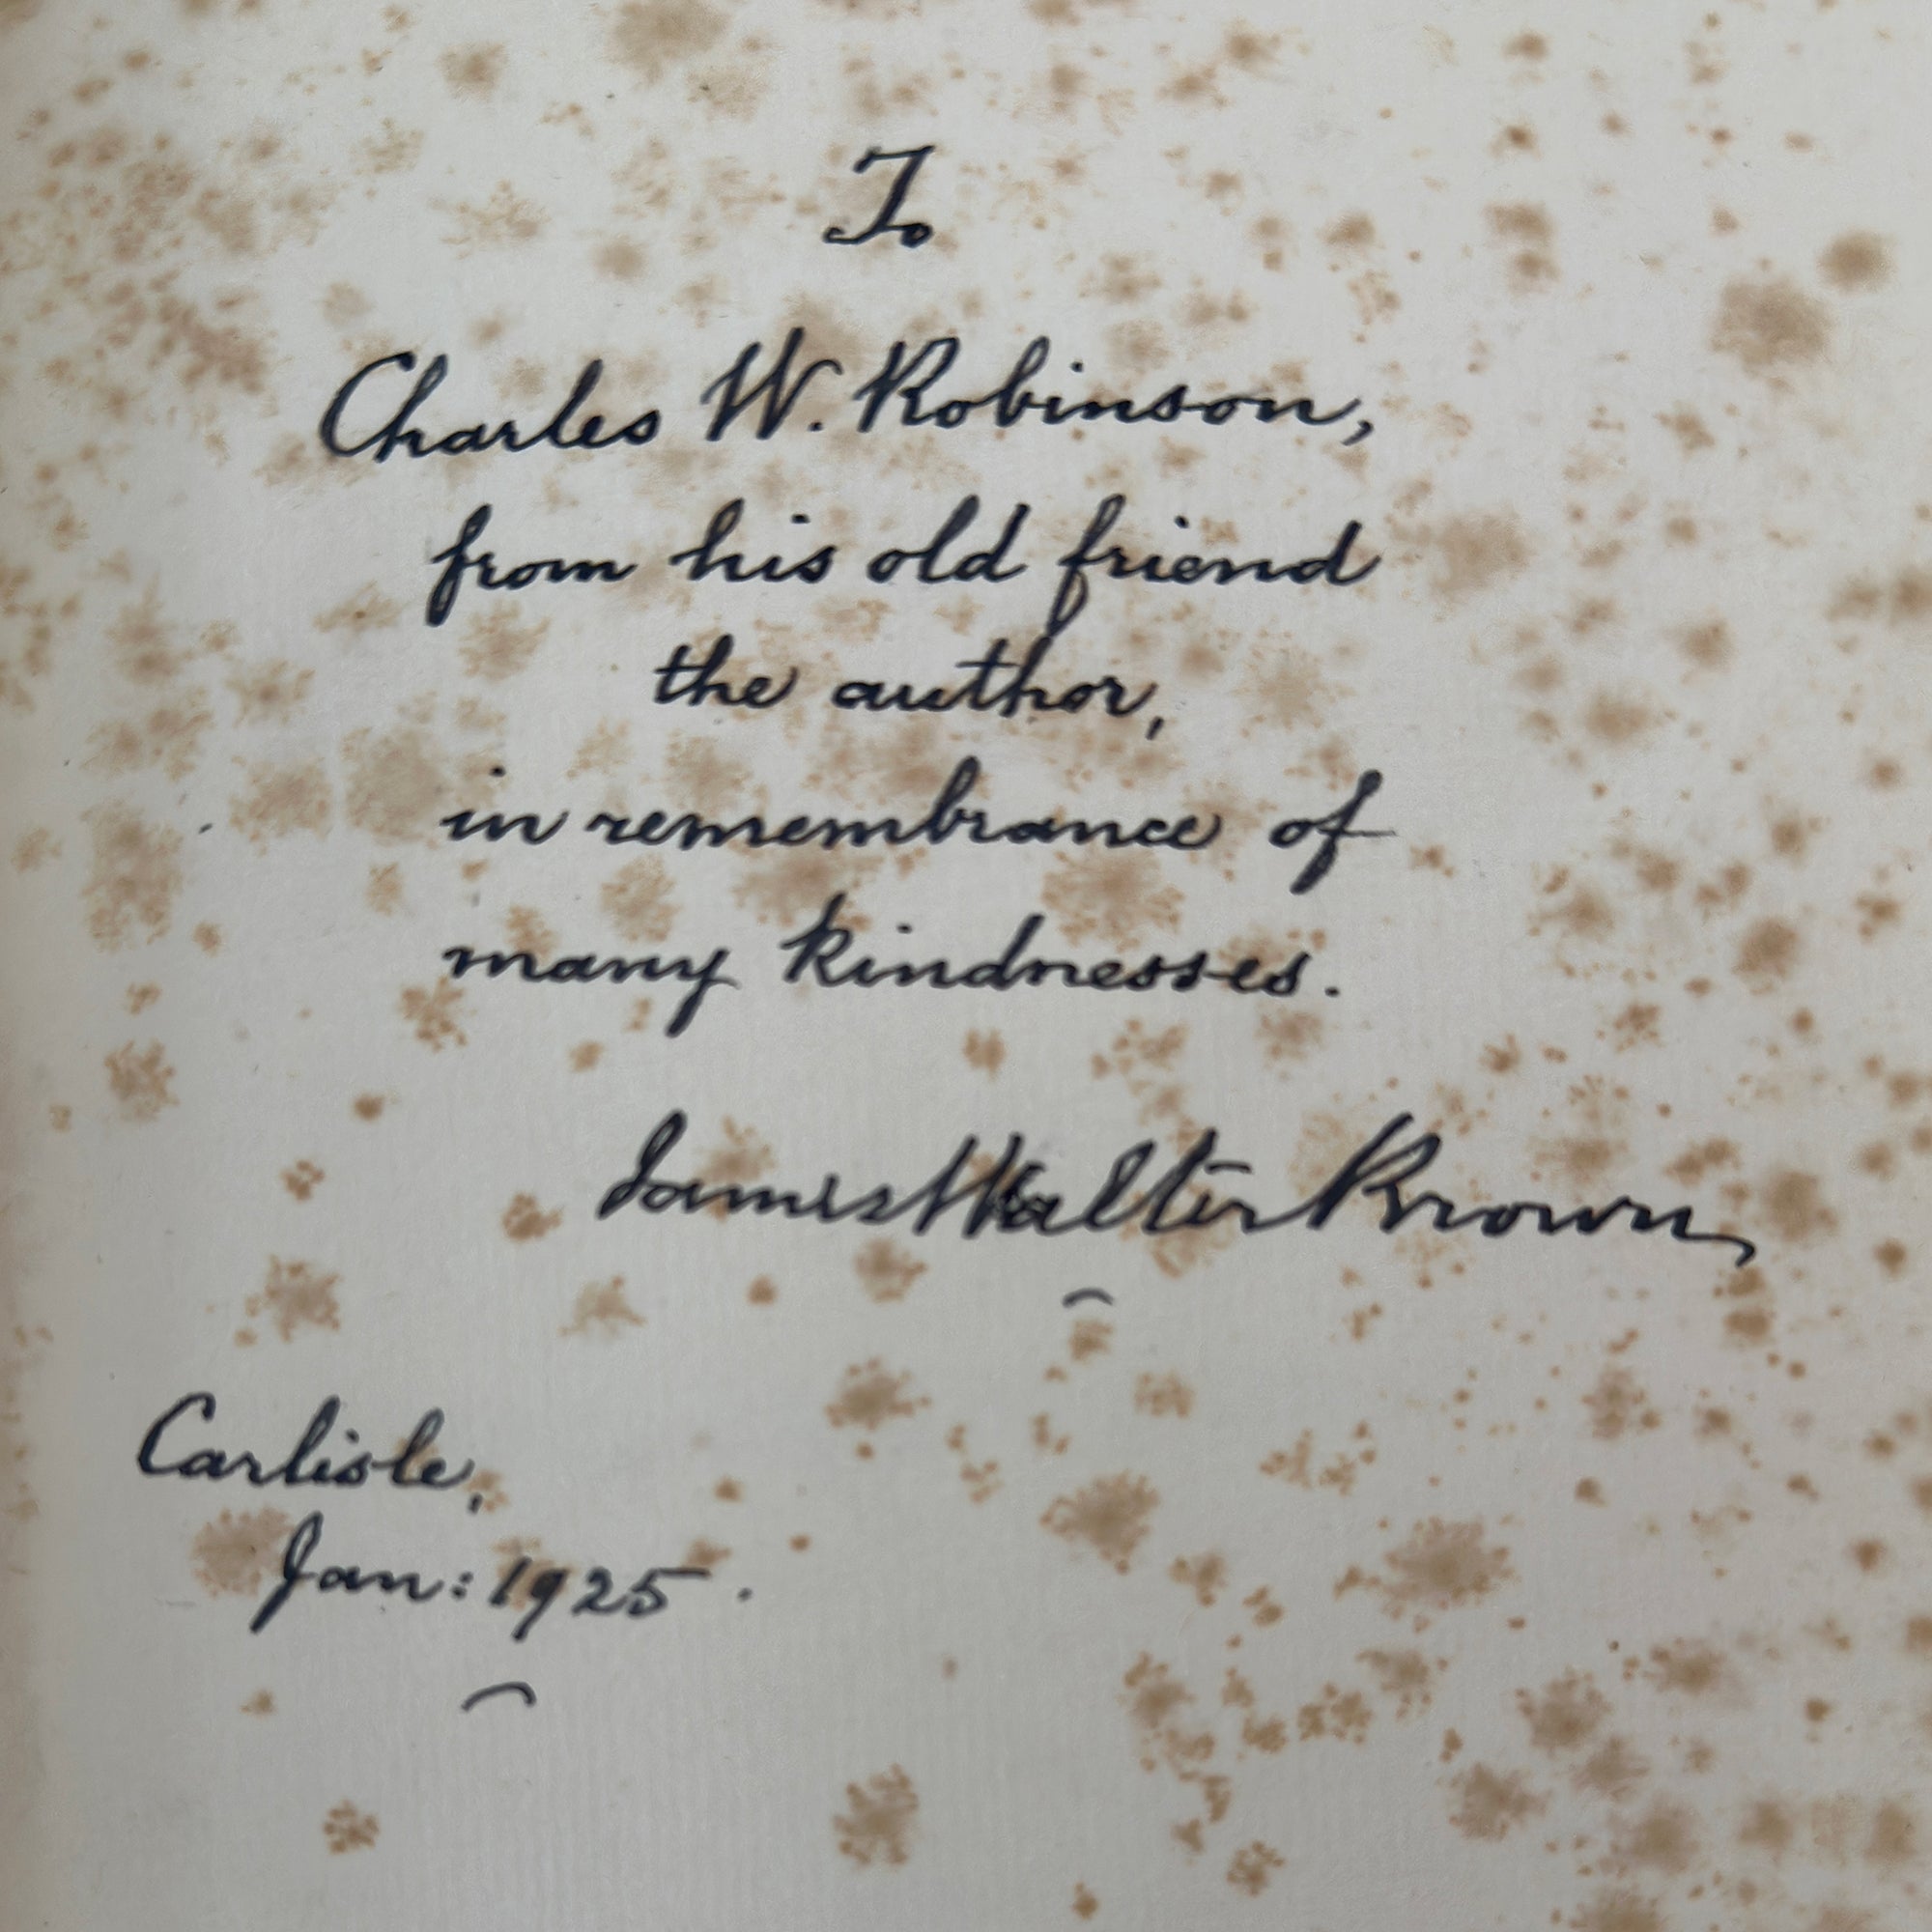 To
Charles W. Robinson,
from his old friend
the author,
in remembrance of
many kindnesses.
James Walter Brown
Carlisle,
Jan: 1925.